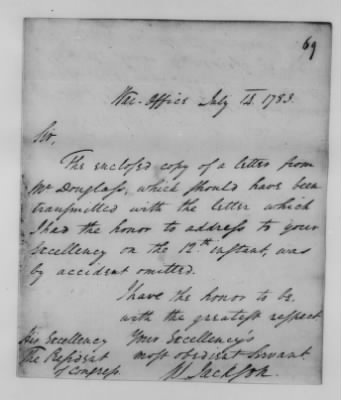 69
War-Office July 15. 1783.
Sir,
The enclosed copy of a letter from
Mr Douglass, which should have been
transmitted with the letter which
I had the honor to address to your
Excellency on the 12th instant, was
by accident omitted.
I have the honor to be,
with the greatest respect
Your Excellency's
most obedient Servant
W Jackson.
His Excellency
The President
of Congress.